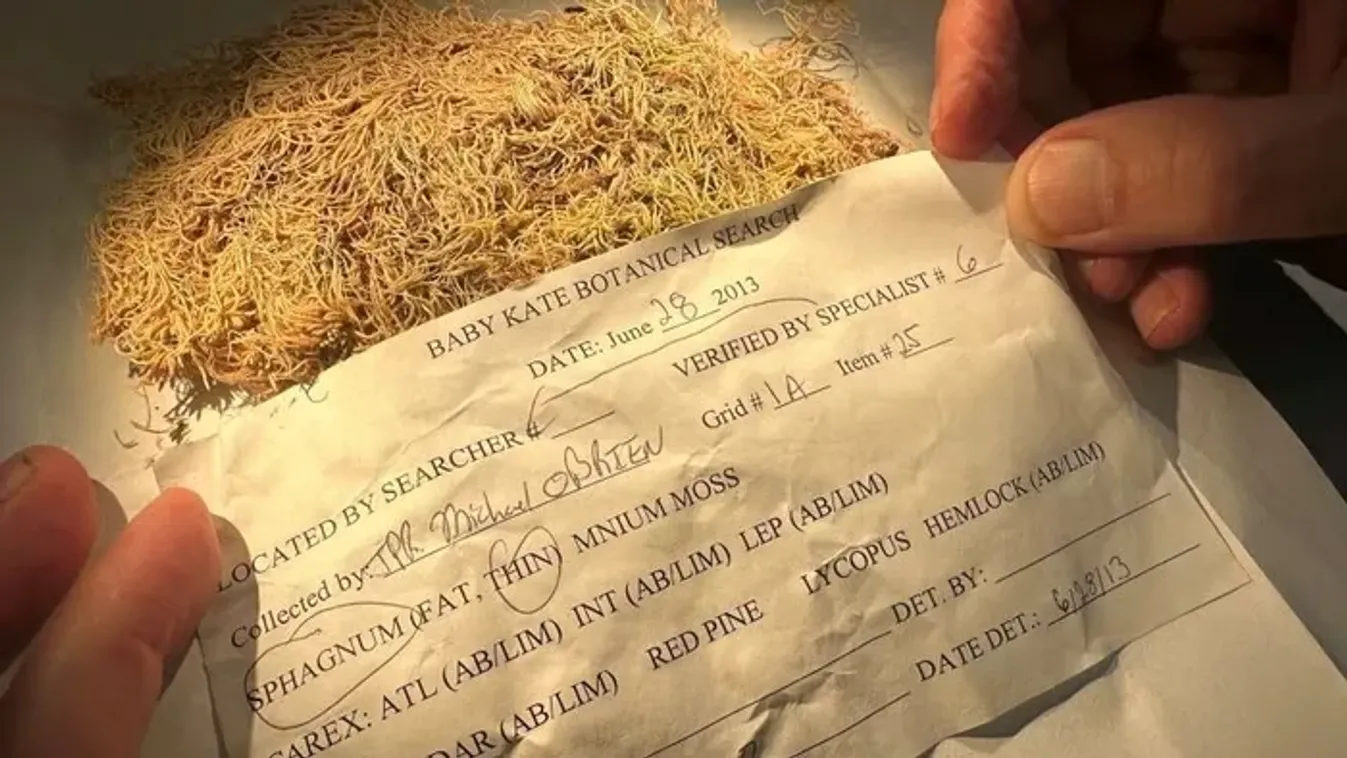 BABY KATE BOTANICAL SEARCH
DATE: June 28 2013
LOCATED BY SEARCHER # VERIFIED BY SPECIALIST # 6
Collected by: TPR. Michael OBRIEN Grid # 1A Item # 25
SPHAGNUM (FAT, THIN) MNIUM MOSS
CAREX: ATL (AB/LIM) INT (AB/LIM) LEP (AB/LIM)
DAR (AB/LIM) RED PINE LYCOPUS HEMLOCK (AB/LIM)
DET. BY:
DATE DET.: 6/28/13